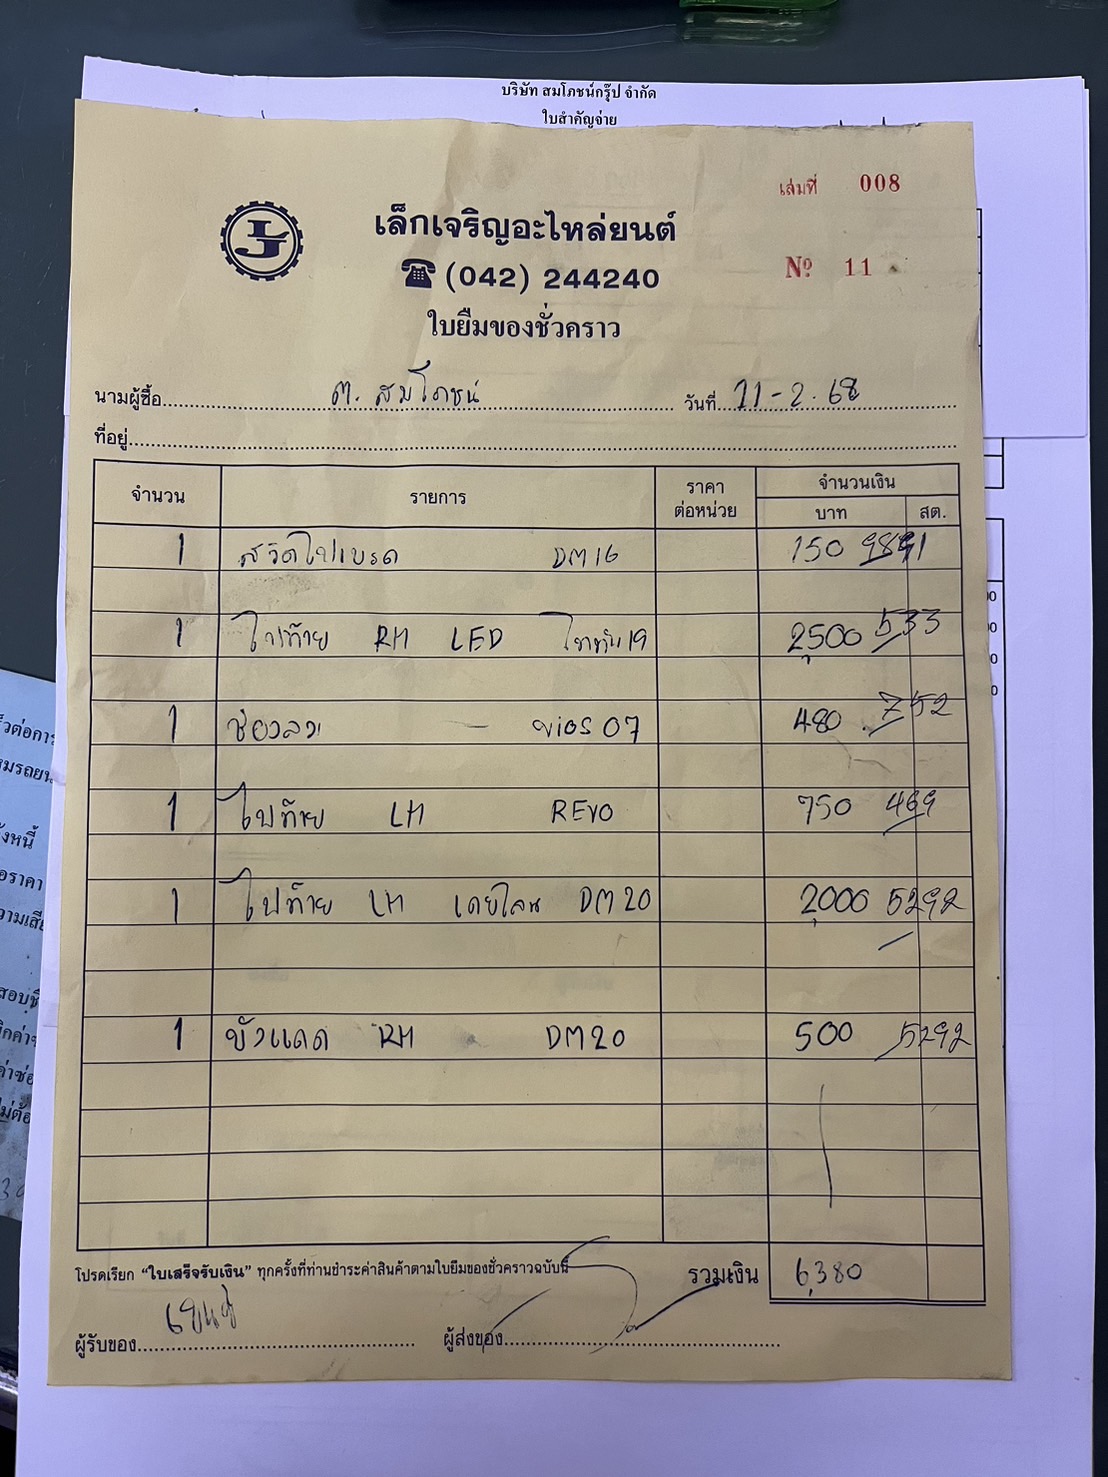 บริษัท สมโภชน์กรุ๊ป จำกัด
ใบสำคัญจ่าย
เล่มที่ 008
LJ เล็กเจริญอะไหล่ยนต์
(042) 244240
Nº 11
ใบยืมของชั่วคราว
นามผู้ซื้อ ต. สมโภชน์ วันที่ 11-2.68
ที่อยู่
จำนวน รายการ ราคาต่อหน่วย จำนวนเงิน
บาท สต.
1 สวิตไฟเบรค DM16 150 9891
1 ไฟท้าย RH LED ไททัน19 2,500 533
1 - vios 07 480 752
1 ไฟท้าย LH REVO 750 469
1 ไฟท้าย LH DM20 2,000 5292
1 บังแดด RH DM20 500 5292
โปรดเรียก “ใบเสร็จรับเงิน” ทุกครั้งที่ท่านชำระค่าสินค้าตามใบยืมของชั่วคราวฉบับนี้ รวมเงิน 6,380
ผู้รับของ ผู้ส่งของ